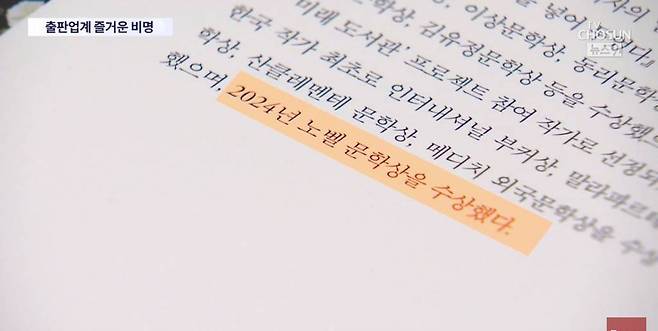 출판업계 즐거운 비명
TV CHOSUN
뉴스9
넣어 있다』
이상문학상, 동리문학상
문학상, 김유정문학상 등을 수상했으
『미래 도서관』 프로젝트 참여 작가로 선정되
한국 작가 최초로 인터내셔널 부커상, 말라파르테
학상, 산클레멘테 문학상, 메디치 외국문학상을 수상
했으며, 2024년 노벨 문학상을 수상했다.